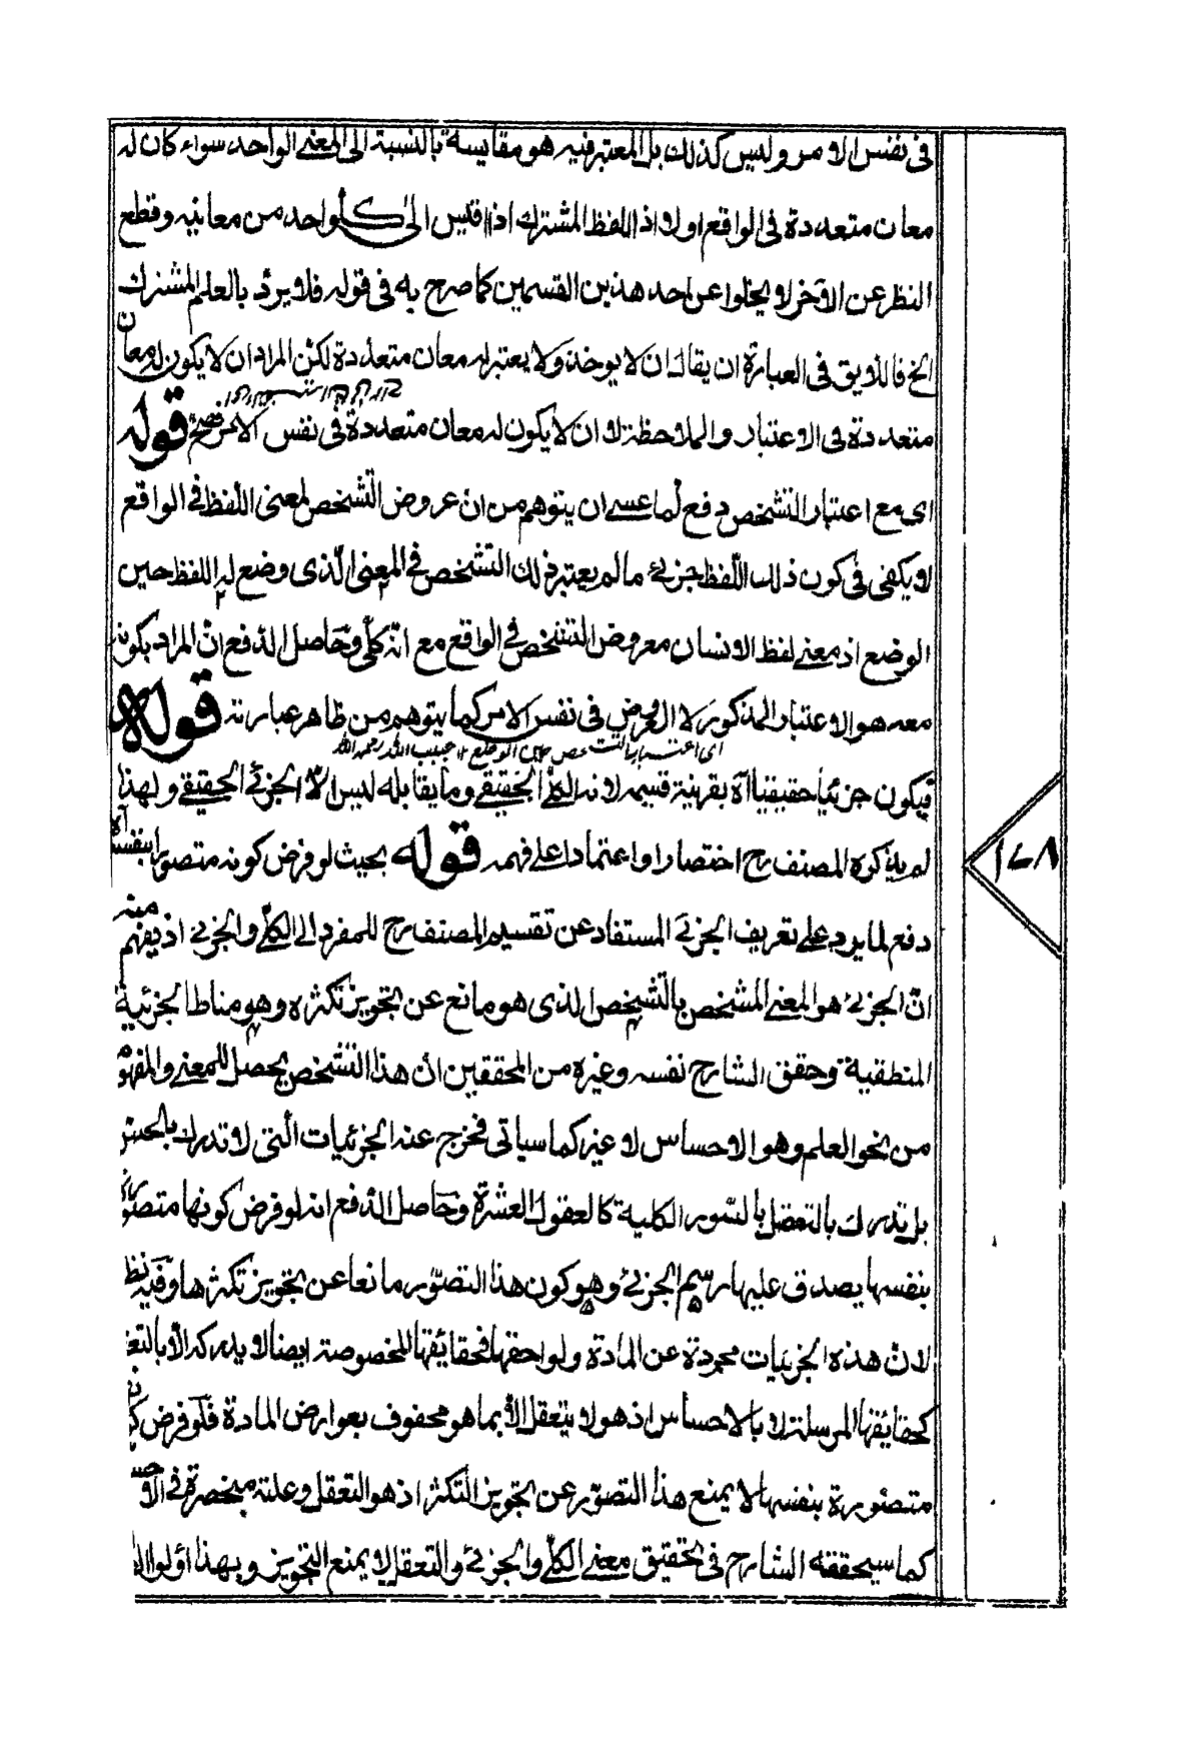 فى نفس الامر وليس كذلك بل المعتبر فيه هو مقايسة بالنسبة الى المعنى الواحد سواء كان له
معان متعددة فى الواقع اولا اذ اللفظ المشترك اذا قيس الى كل واحد من معانيه وقطع
النظر عن الآخر لا يخلوا عن احد هذين القسمين كما صرح به فى قوله فلا يرد بالعلم المشترك
الخ فاللايق فى العبارة ان يقال ان لا يوخذ ولا يعتبر له معان متعددة لكن المراد ان لا يكون له معان
متعددة فى الاعتبار والملاحظة لا ان لا يكون له معان متعددة فى نفس الامر فصح قوله
اى مع اعتبار التشخص دفع لما عسى ان يتوهم من ان عروض التشخص لمعنى اللفظ فى الواقع
لا يكفى فى كون ذلك اللفظ جزئى ما لم يعتبر ذلك التشخص فى المعنى الذى وضع له اللفظ حين
الوضع اذ معنى لفظ الانسان معروض التشخص فى الواقع مع انه كلى وحاصل الدفع ان المراد بكونه
معه هو الاعتبار المذكور لا العروض فى نفس الامر كما يتوهم من ظاهر عبارته قوله
اى اعتبار التشخص حين الوضع ١٢ حبيب الله رحمه الله
فيكون جزئيا حقيقيا آه بقرينة قسيمه لانه الكلى الحقيقى وما يقابله ليس الا الجزئى الحقيقى ولهذا
لم يذكره المصنف رح اختصارا واعتمادا على فهمه قوله بحيث لو فرض كونه متصورا بنفسه آه
دفع لما يرد على تعريف الجزئى المستفاد عن تقسيم المصنف رح للمفرد الى الكلى والجزئى اذ يفهم منه
ان الجزئى هو المعنى المشخص بالتشخص الذى هو مانع عن تجويز تكثره وهو مناط الجزئية
المنطقية وحقق الشارح نفسه وغيره من المحققين ان هذا التشخص يحصل للمعنى والمفهوم
من نحو العلم وهو الاحساس لا غير كما سياتى فخرج عنه الجزئيات التى لا تدرك بالحس
بل تدرك بالتعقل بالصور الكلية كالعقول العشرة وحاصل الدفع انه لو فرض كونها متصورة
بنفسها يصدق عليها رسم الجزئى وهو كون هذا التصور مانعا عن تجويز تكثرها وفيه نظر
لان هذه الجزئيات مجردة عن المادة ولواحقها فحقائقها المخصوصة ايضا لا يدركه الا بالتعقل
كحقائقها المرسلة لا بالاحساس اذ هو لا يتعقل الا بما هو محفوف بعوارض المادة فلو فرض كونها
متصورة بنفسها لا يمنع هذا التصور عن تجويز التكثر اذ هو التعقل وعلته منحصرة فى الاحساس
كما سيحققه الشارح فى تحقيق معنى الكلى والجزئى والتعقل لا يمنع التجويز وبهذا اولوا
١٦٨